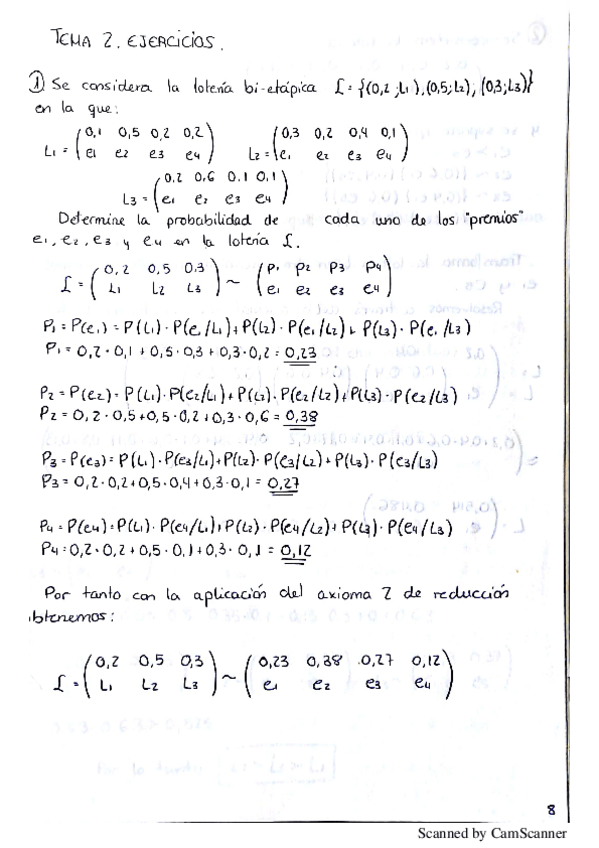 TEMA 2. EJERCICIOS.
① Se considera la lotería bi-etápica L = {(0,2;L1),(0,5;L2);(0,3;L3)}
en la que:
L1 = (0,1 0,5 0,2 0,2 L2 = (0,3 0,2 0,4 0,1
e1 e2 e3 e4) e1 e2 e3 e4)
L3 = (0,2 0,6 0.1 0,1
e1 e2 e3 e4)
Determine la probabilidad de cada uno de los "premios"
e1, e2, e3 y e4 en la lotería L.
L = (0,2 0,5 0,3 ~ (P1 P2 P3 P4
L1 L2 L3) e1 e2 e3 e4)
P1 = P(e1) = P(L1) · P(e1/L1) + P(L2) · P(e1/L2) + P(L3) · P(e1/L3)
P1 = 0,2 · 0,1 + 0,5 · 0,3 + 0,3 · 0,2 = 0,23
P2 = P(e2) = P(L1) · P(e2/L1) + P(L2) · P(e2/L2) + P(L3) · P(e2/L3)
P2 = 0,2 · 0,5 + 0,5 · 0,2 + 0,3 · 0,6 = 0,38
P3 = P(e3) = P(L1) · P(e3/L1) + P(L2) · P(e3/L2) + P(L3) · P(e3/L3)
P3 = 0,2 · 0,2 + 0,5 · 0,4 + 0,3 · 0,1 = 0,27
P4 = P(e4) = P(L1) · P(e4/L1) + P(L2) · P(e4/L2) + P(L3) · P(e4/L3)
P4 = 0,2 · 0,2 + 0,5 · 0,1 + 0,3 · 0,1 = 0,12
Por tanto con la aplicación del axioma 2 de reducción
obtenemos:
L = (0,2 0,5 0,3 ~ (0,23 0,38 0,27 0,12
L1 L2 L3) e1 e2 e3 e4)
8
Scanned by CamScanner